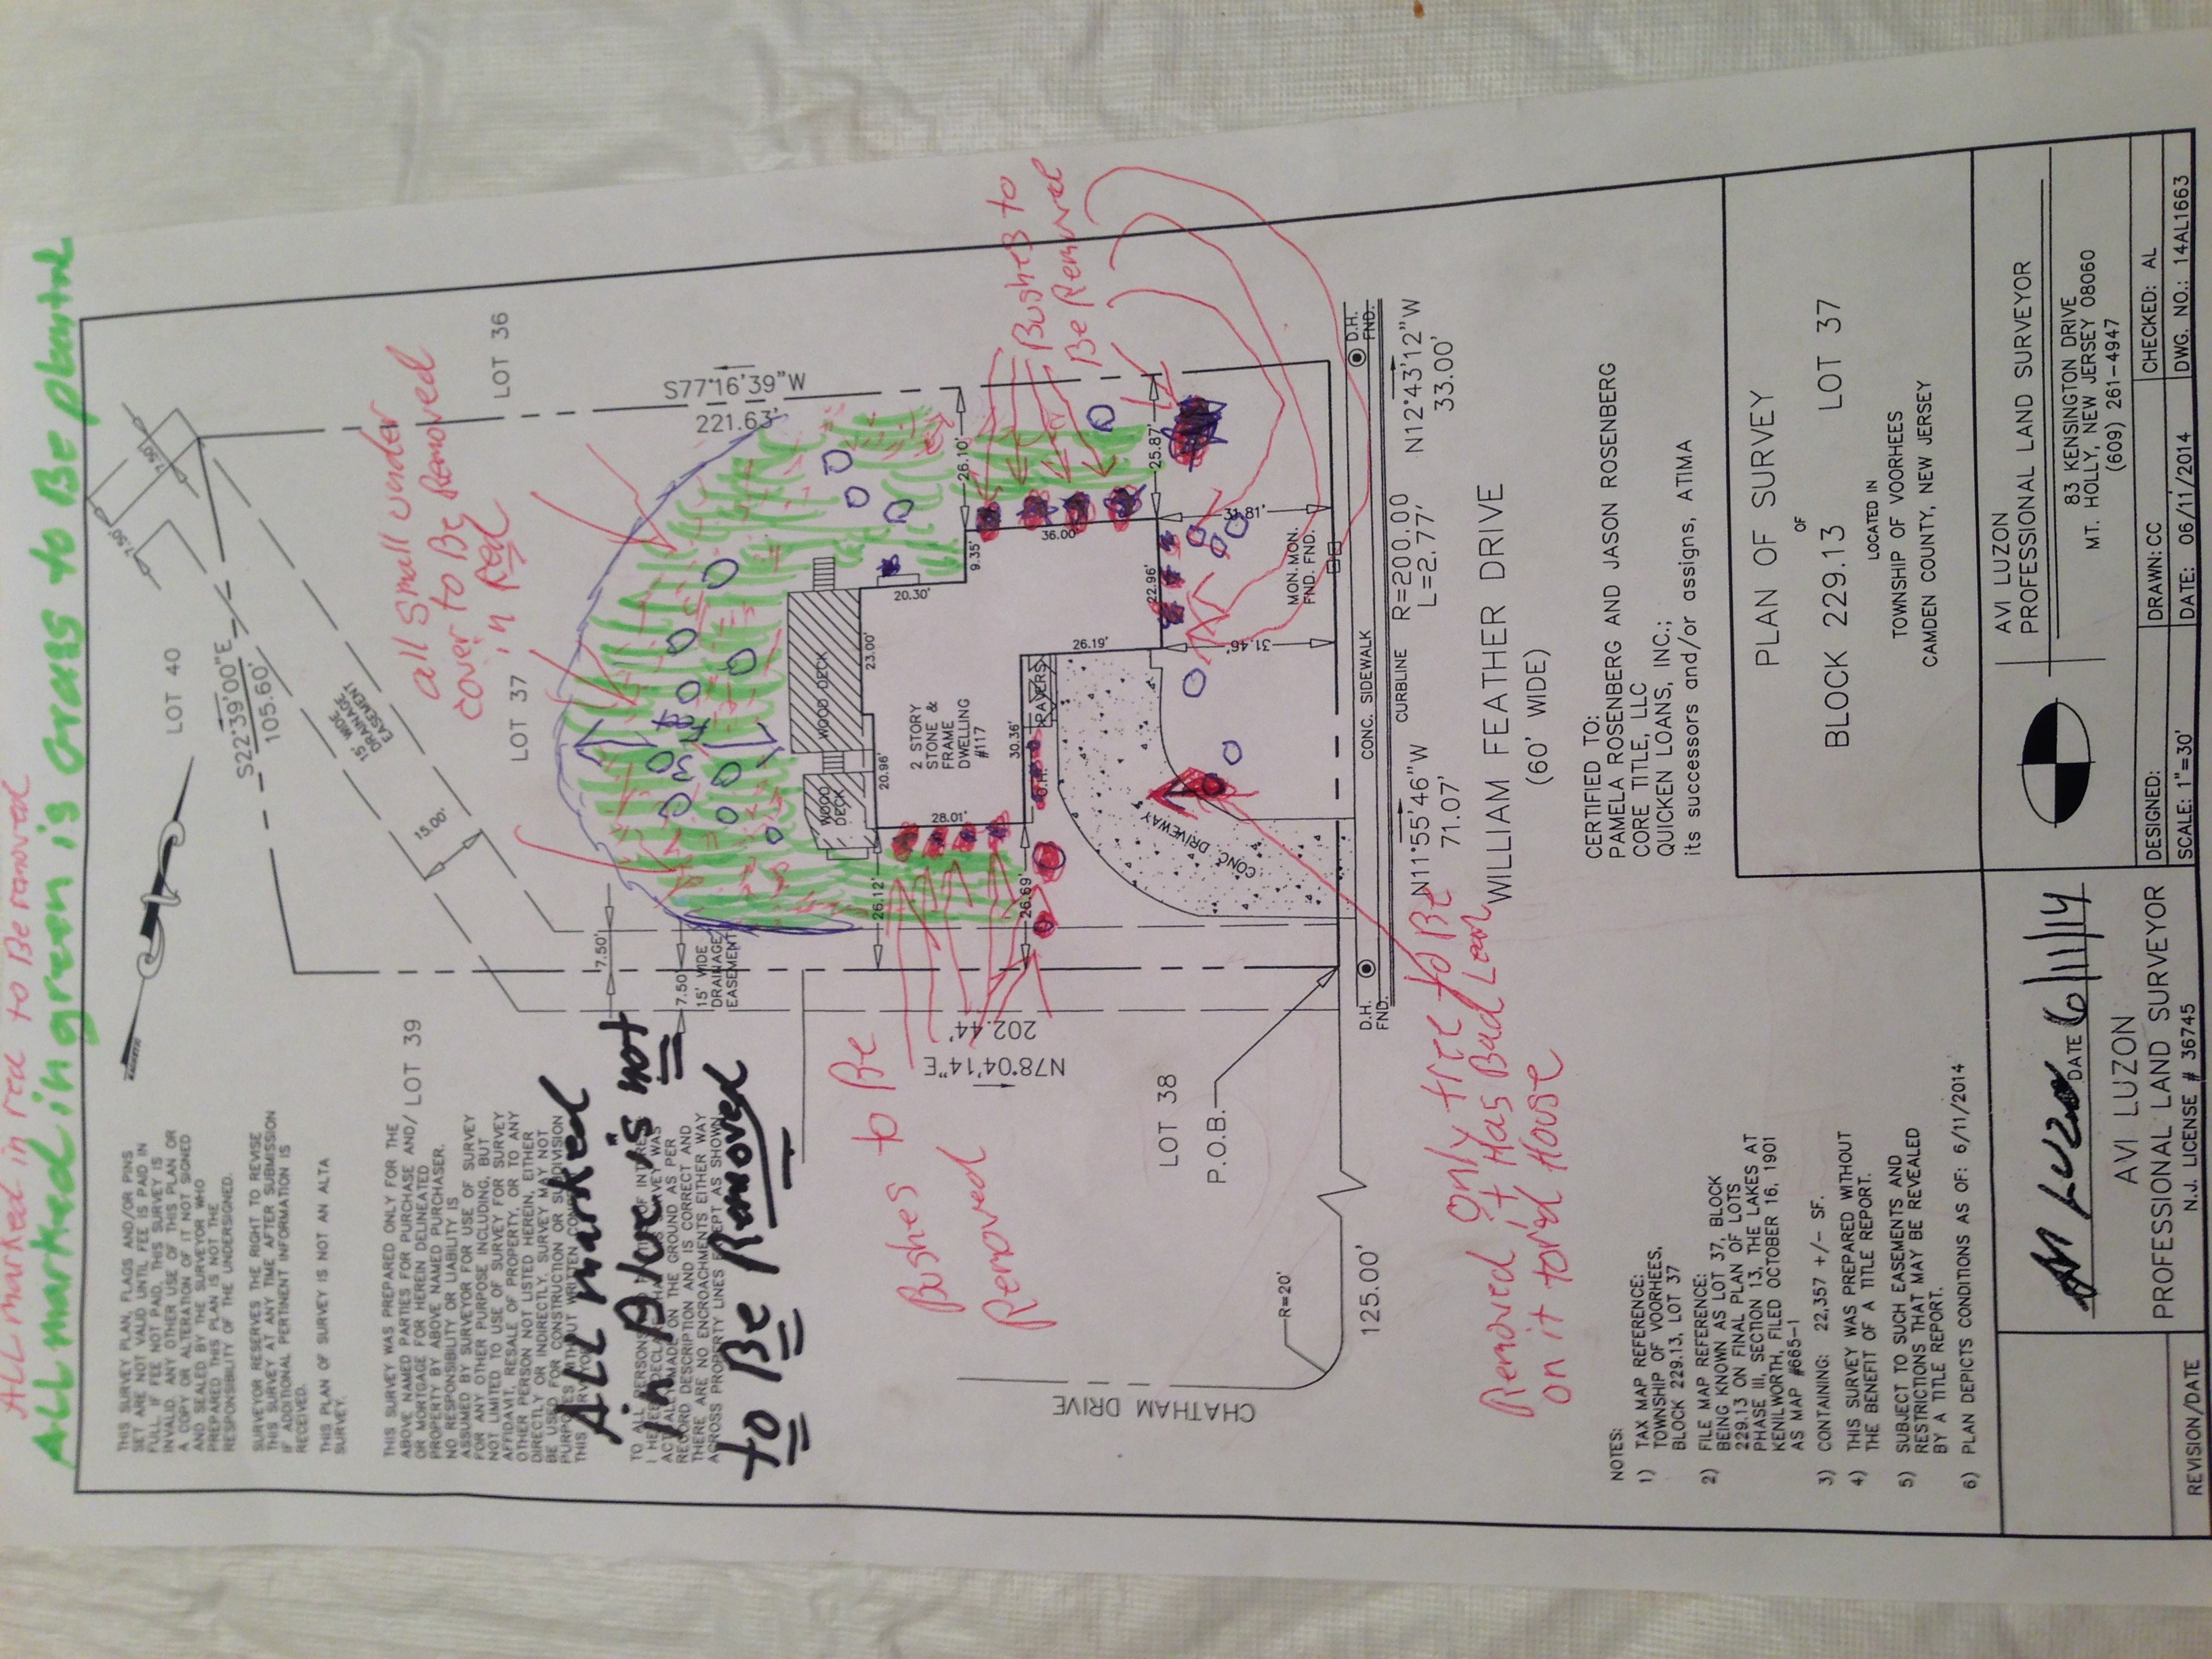 ALL marked in red to Be removed
ALL marked in green is Grass to Be planted
THIS SURVEY PLAN, FLAGS AND/OR PINS
SET ARE NOT VALID UNTIL FEE IS PAID IN
FULL. IF FEE NOT PAID, THIS SURVEY IS
INVALID. ANY OTHER USE OF THIS PLAN OR
A COPY OR ALTERATION OF IT NOT SIGNED
AND SEALED BY THE SURVEYOR WHO
PREPARED THIS PLAN IS NOT THE
RESPONSIBILITY OF THE UNDERSIGNED.
SURVEYOR RESERVES THE RIGHT TO REVISE
THIS SURVEY AT ANY TIME AFTER SUBMISSION
IF ADDITIONAL PERTINENT INFORMATION IS
RECEIVED.
THIS PLAN OF SURVEY IS NOT AN ALTA
SURVEY.
THIS SURVEY WAS PREPARED ONLY FOR THE
ABOVE NAMED PARTIES FOR PURCHASE AND/
OR MORTGAGE FOR HEREIN DELINEATED
PROPERTY BY ABOVE NAMED PURCHASER.
NO RESPONSIBILITY OR LIABILITY IS
ASSUMED BY SURVEYOR FOR USE OF SURVEY
FOR ANY OTHER PURPOSE INCLUDING, BUT
NOT LIMITED TO USE OF SURVEY FOR SURVEY
AFFIDAVIT, RESALE OF PROPERTY, OR TO ANY
OTHER PERSON NOT LISTED HEREIN, EITHER
DIRECTLY OR INDIRECTLY. SURVEY MAY NOT
BE USED FOR CONSTRUCTION OR SUBDIVISION
PURPOSES WITHOUT WRITTEN
TO ALL PERSONS OF
WAS
MADE ON THE GROUND AS PER
RECORD DESCRIPTION AND IS CORRECT AND
THERE ARE NO ENCROACHMENTS EITHER WAY
ACROSS PROPERTY LINES EXCEPT AS SHOWN
ALL marked
in Blue is not
to Be Removed
LOT 39
LOT 40
S22°39'00"E
105.60'
15' WIDE
DRAINAGE
EASEMENT
15.00'
7.50'
7.50'
all small under
cover to Be Removed
in Red
LOT 37
LOT 36
S77°16'39"W
221.63'
7.50'
7.50'
15' WIDE
DRAINAGE
EASEMENT
Bushes to Be
Removed
N78°04'14"E
202.44'
Bushes to
Be Removed
WOOD DECK
WOOD
DECK
23.00'
20.30'
9.35'
26.10'
36.00'
25.87'
20.96'
28.01'
26.12'
26.69'
2 STORY
STONE &
FRAME
DWELLING
#117
30.36'
PAVERS
O.H.
26.19'
22.96'
31.81'
31.46'
CONC. DRIVEWAY
MON. MON.
FND. FND.
D.H.
FND.
D.H.
FND.
CONC. SIDEWALK
CURBLINE
R=200.00
L=2.77'
N12°43'12"W
33.00'
N11°55'46"W
71.07'
WILLIAM FEATHER DRIVE
(60' WIDE)
LOT 38
P.O.B.
125.00'
R=20'
CHATHAM DRIVE
only tree to Be
Removed it Has Bad Lean
on it tord House
NOTES:
1) TAX MAP REFERENCE:
TOWNSHIP OF VOORHEES,
BLOCK 229.13, LOT 37
2) FILE MAP REFERENCE:
BEING KNOWN AS LOT 37, BLOCK
229.13 ON FINAL PLAN OF LOTS
PHASE III, SECTION 13, THE LAKES AT
KENILWORTH, FILED OCTOBER 16, 1901
AS MAP #665-1
3) CONTAINING: 22,357 +/- SF.
4) THIS SURVEY WAS PREPARED WITHOUT
THE BENEFIT OF A TITLE REPORT.
5) SUBJECT TO SUCH EASEMENTS AND
RESTRICTIONS THAT MAY BE REVEALED
BY A TITLE REPORT.
6) PLAN DEPICTS CONDITIONS AS OF: 6/11/2014
CERTIFIED TO:
PAMELA ROSENBERG AND JASON ROSENBERG
CORE TITLE, LLC
QUICKEN LOANS, INC.;
its successors and/or assigns, ATIMA
PLAN OF SURVEY
OF
BLOCK 229.13 LOT 37
LOCATED IN
TOWNSHIP OF VOORHEES
CAMDEN COUNTY, NEW JERSEY
AVI LUZON
PROFESSIONAL LAND SURVEYOR
83 KENSINGTON DRIVE
MT. HOLLY, NEW JERSEY 08060
(609) 261-4947
DESIGNED:
DRAWN: CC
CHECKED: AL
SCALE: 1"=30'
DATE: 06/11/2014
DWG. NO.: 14AL1663
DATE 6/11/14
AVI LUZON
PROFESSIONAL LAND SURVEYOR
N.J. LICENSE # 36745
REVISION/DATE